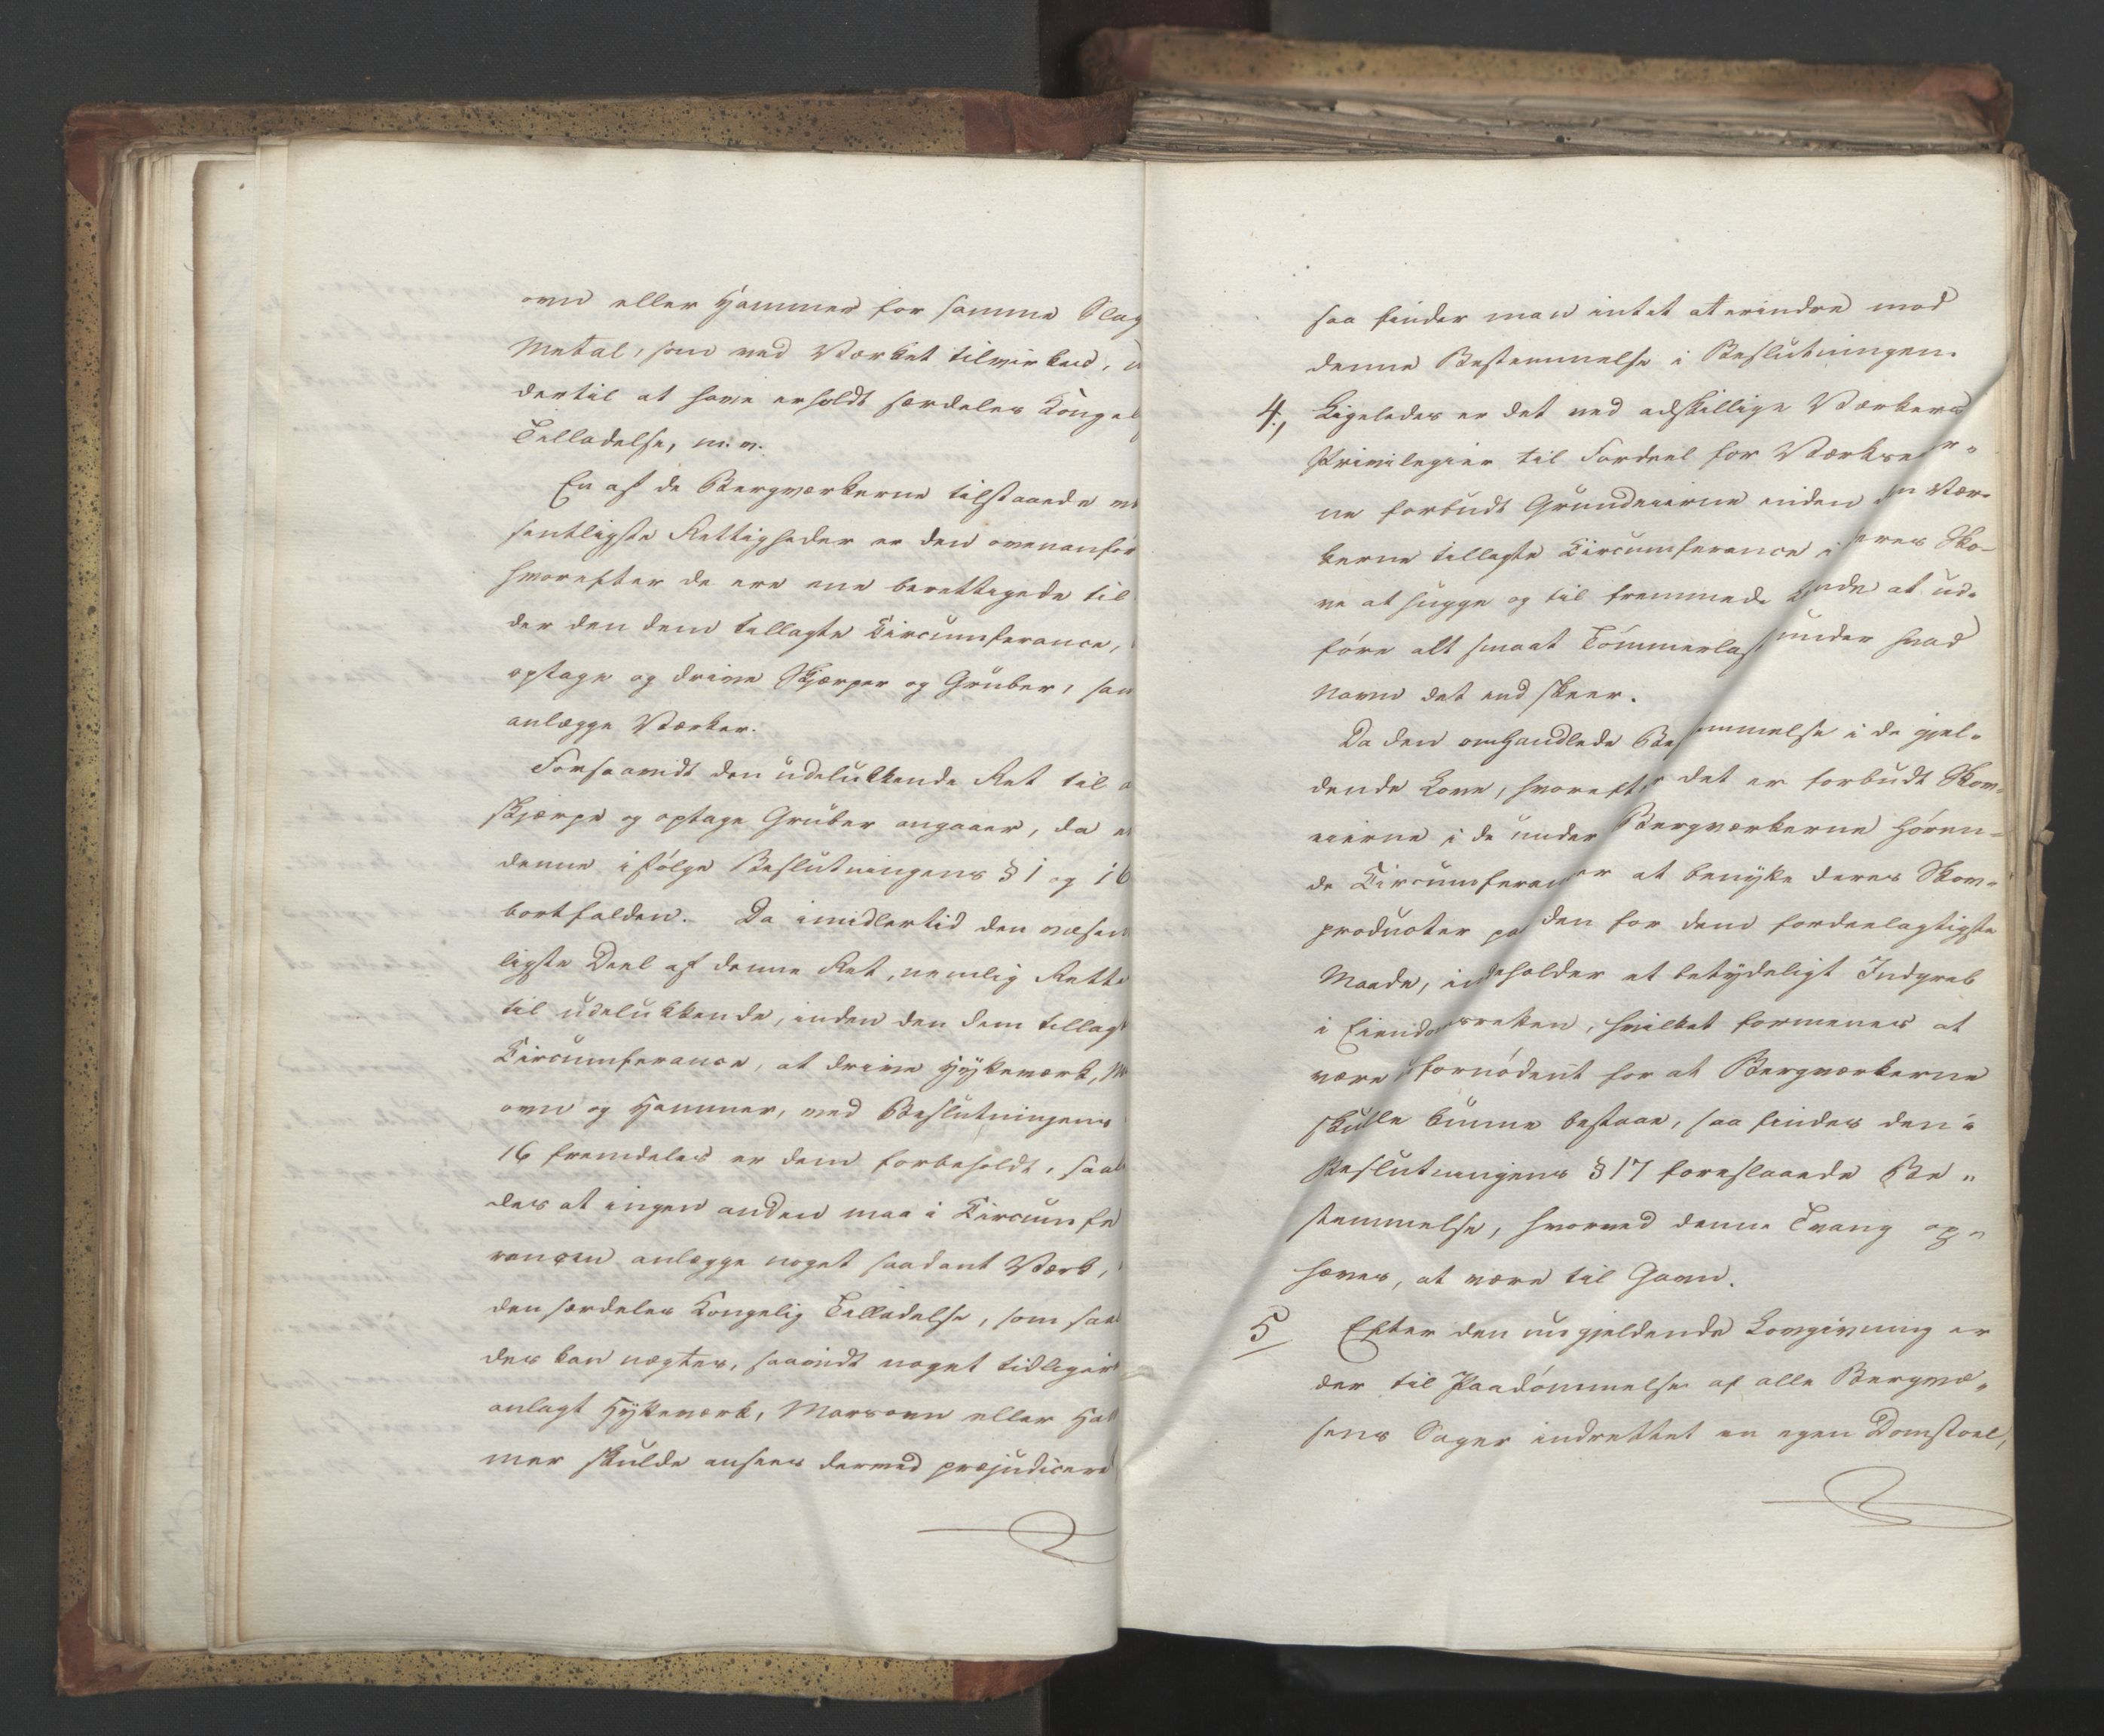 ovn eller Hammer for samme Slag
Metal, som ved Værket tilvirkes,
dertil at have erholdt særdeles Kongel
Tilladelse, m. v.
En af de Bergværkerne tilstaaede væ
sentligste Rettigheder er den ovenanfør
hvorefter de ere ene berettigede til
der den dem tillagte Circumferance,
optage og drive Skjærper og Gruber, sam
anlægge Værker.
Forsaavidt den udelukkende Ret til a
skjærpe og optage Gruber angaaer, da er
denne ifølge Beslutningens § 1 og 16
bortfalden. Da imidlertid den væsen
ligste Deel af denne Ret, nemlig Rette
til udelukkende, inden den dem tillagt
Circumferance, at drive Hytteværk, M
ovn og Hammer, ved Beslutningens
16 fremdeles er dem forbeholdt, saal
des at ingen anden maa i Circumfe
rancen anlægge noget saadant Værk,
den særdeles Kongelig Tilladelse, som saal
des kan nægtes, saavidt noget tidliger
anlagt Hytteværk, Marsovn eller Ham
mer skulde ansees derved præjudicere
saa finder man intet at erindre mod
denne Bestemmelse i Beslutningen.
4., Ligeledes er det ved adskillige Værkers
Privilegier til Fordeel for Værks
ne forbudt Grundeierne inden Vær-
kerne tillagte Circumferance i deres Sko-
ve at hugge og til fremmede at ud-
føre alt smaat Tømmerlast under hvad
Navn det end skeer.
Da den omhandlede Bestemmelse i de gjel-
dende Love, hvorefter det er forbudt Skov-
eierne i de under Bergværkerne høren-
de Circumferancer at benytte deres Skov-
producter paa den for dem fordeelagtigste
Maade, indeholder et betydeligt Indgreb
i Eiendomsretten, hvilket formenes at
være ufornødent for at Bergværkerne
skulle kunne bestaae, saa findes den i
Beslutningens § 17 foreslaaede Be-
stemmelse, hvorved denne Tvang op-
hæves, at være til Gavn.
5 Efter den nu gjeldende Lovgivning er
der til Paadømmelse af alle Bergvæ-
sens Sager indrettet en egen Domstoel,